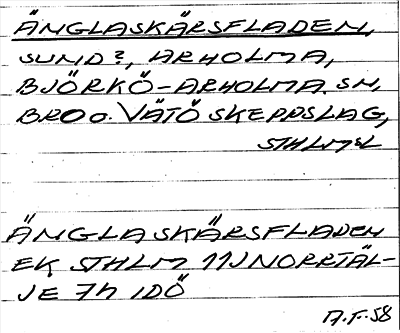 ÄNGLASKÄRSFLADEN,
SUND?, ARHOLMA,
BJÖRKÖ-ARHOLMA SN,
BRO O. VÄTÖ SKEPPSLAG,
STHLMSL
ÄNGLASKÄRSFLADEN
EK STHLM 11J NORRTÄL-
JE 7h IDÖ
A.F. 58